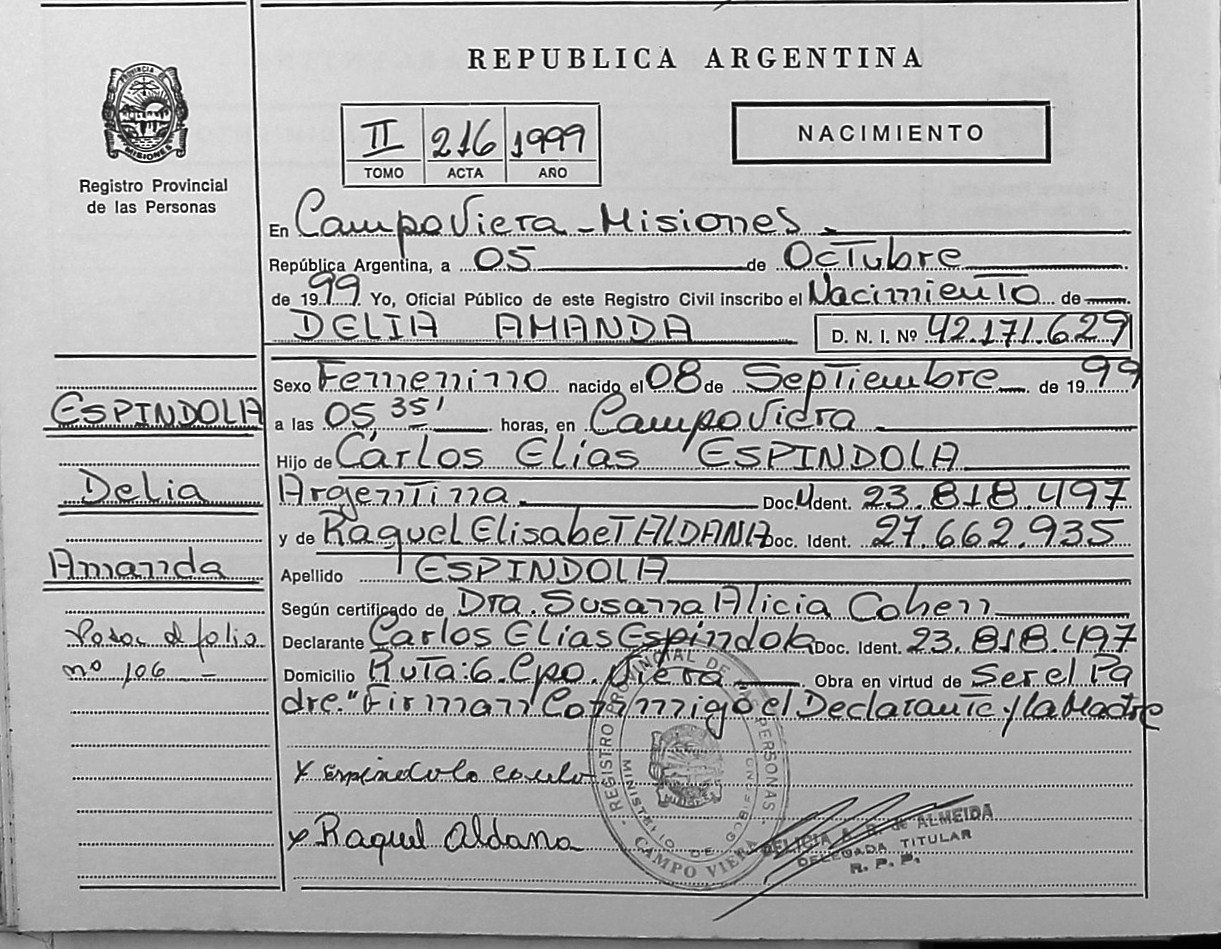 REPUBLICA ARGENTINA
PROVINCIA DE MISIONES
Registro Provincial
de las Personas
II 216 1999
TOMO ACTA AÑO
NACIMIENTO
En Campo Viera - Misiones
República Argentina, a 05 de Octubre
de 1999. Yo, Oficial Público de este Registro Civil inscribo el Nacimiento de
DELIA AMANDA D. N. I. Nº 42.171.629
Sexo Femenino nacido el 08 de Septiembre de 1999
a las 05,35' horas, en Campo Viera
Hijo de Carlos Elías ESPINDOLA
Argentina Doc. Ident. 23.818.497
y de Raquel Elisabet ALDANA Doc. Ident. 27.662.935
Apellido ESPINDOLA
Según certificado de Dra. Susana Alicia Cohen
Declarante Carlos Elias Espindola Doc. Ident. 23.818.497
Domicilio Ruta: 6. Cpo. Viera Obra en virtud de Ser el Pa
dre." Firman Conmigo el Declarante y la Madre
ESPINDOLA
Delia
Amanda
Pasa al folio
nº 106 -
x Espindola
x Raquel Aldana
REGISTRO PROVINCIAL DE LAS PERSONAS
MINISTERIO DE GOBIERNO
CAMPO VIERA
DELICIA A. R. de ALMEIDA
DELEGADA TITULAR
R. P. P.